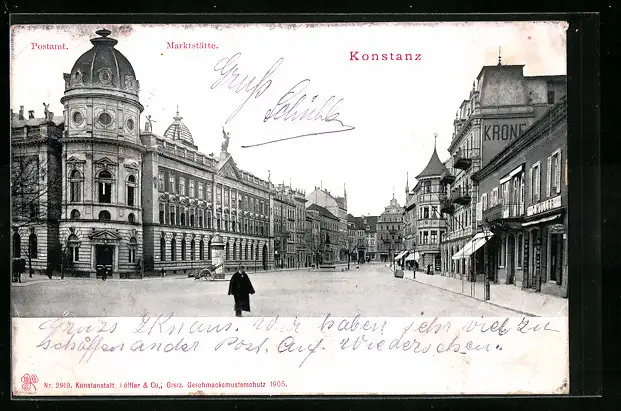 Postamt. Marktstätte. Konstanz
Gruss
KRONE
Gruss Wir haben sehr viel zu
schaffen an der Post, Auf Wiedersehen.
Nr. 2919. Kunstanstalt Löffler & Co., Greiz. Geschmacksmusterschutz 1905.